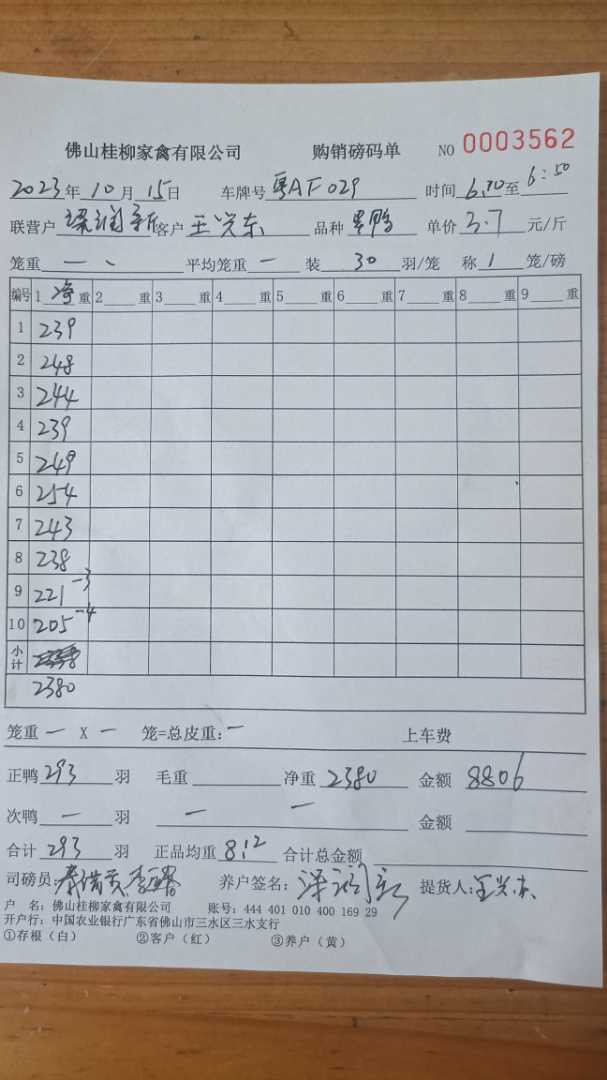 佛山桂柳家禽有限公司 购销磅码单 NO 0003562
2023年10月15日 车牌号 粤AF029 时间 6:20至6:50
联营户 梁润新 客户 王兴东 品种 单价 3.7 元/斤
笼重 — 、 平均笼重 — 装 30 羽/笼 称 1 笼/磅
编号 1 净 重 2 重 3 重 4 重 5 重 6 重 7 重 8 重 9 重
1 239
2 248
3 244
4 239
5 249
6 254
7 243
8 238
9 221 -3
10 205 -4
小计
2380
笼重 — X — 笼=总皮重: — 上车费
正鸭 293 羽 毛重 净重 2380 金额 8806
次鸭 — 羽 — — 金额
合计 293 羽 正品均重 8.12 合计总金额
司磅员: 养户签名: 梁润新 提货人: 王兴东
户 名: 佛山桂柳家禽有限公司 账号: 444 401 010 400 169 29
开户行: 中国农业银行广东省佛山市三水区三水支行
①存根(白) ②客户(红) ③养户(黄)